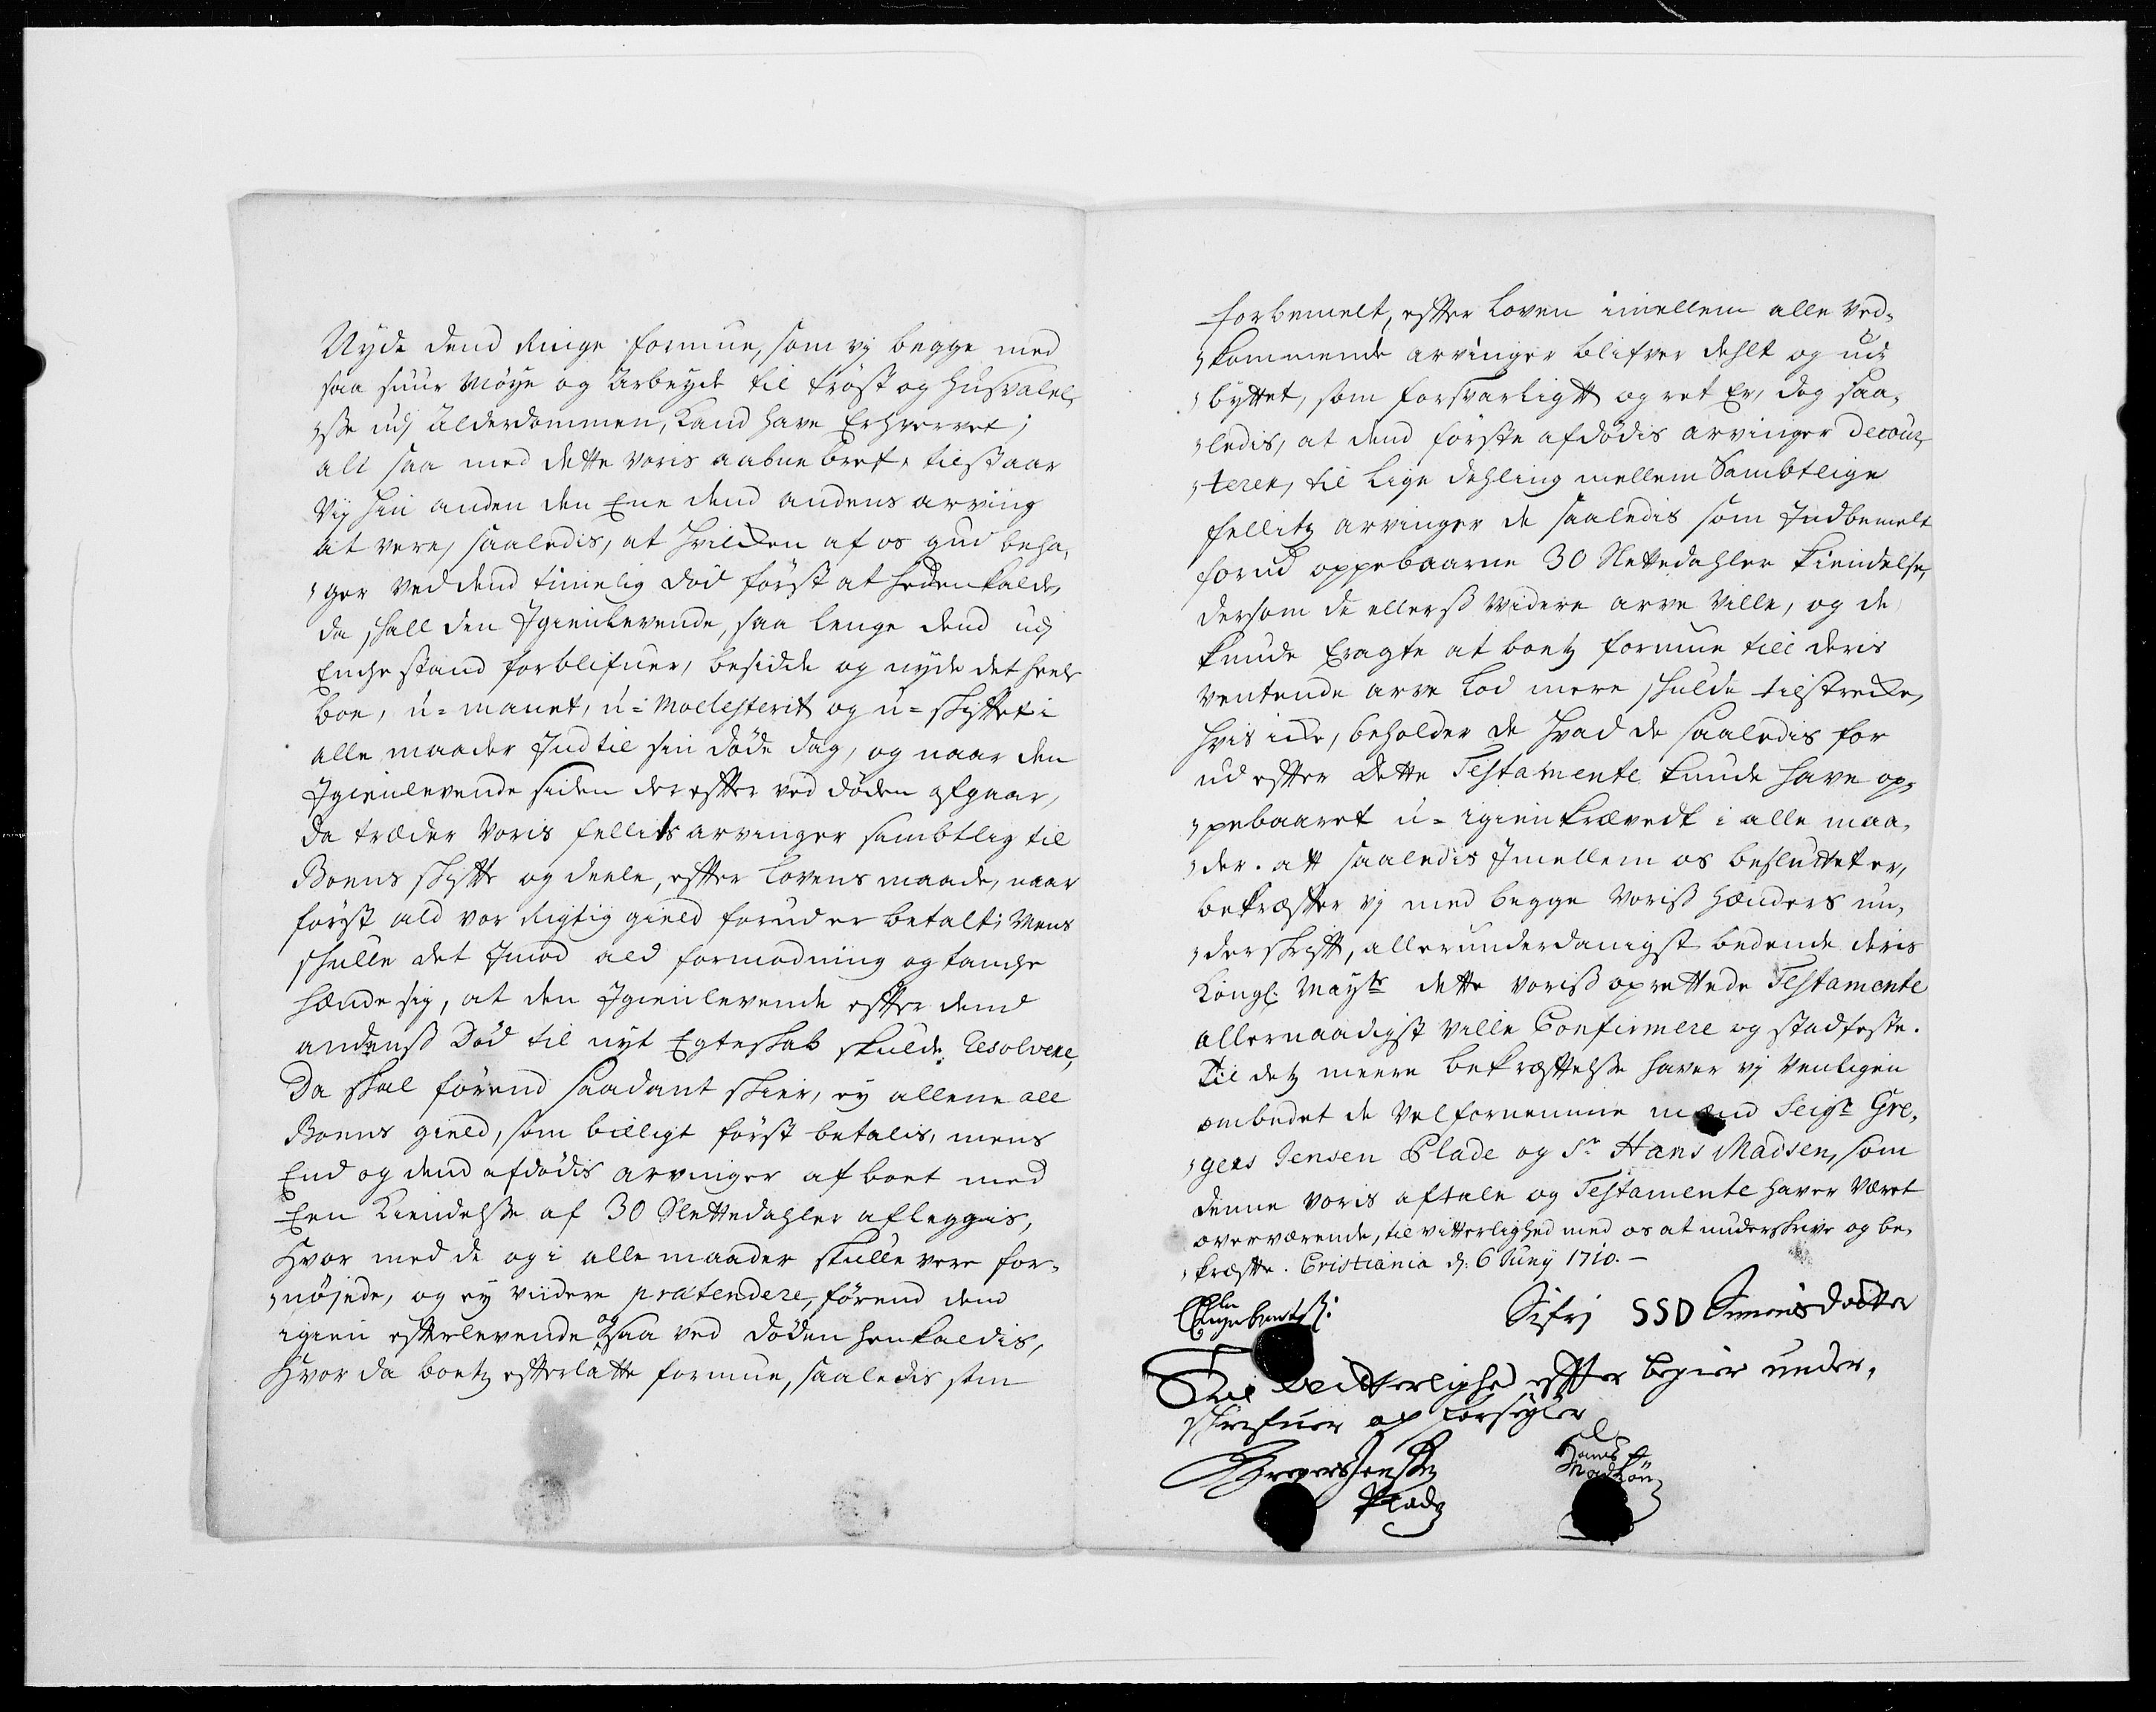 Nyde dend Ringe formue, som vj begge med
saa suur Møye og Arbeyde til trøst og husvalel¬
sse udj Alderdommen, Kand have Erhvervet;
alt saa med dette voris aabne bref, tilstaar
Vij hin anden den Ene dend andens arving
at vere, saaledis, at hvilcken af os gud beha¬
ger ved dend timelig død først at hedenkalde,
da skall den Igienlevende, saa lenge dend udj
Enche stand forblifuer, besidde og nyde det heele
boe, u=manet, u=Mollesterit og u=skifftet i
alle maader Indtil sin døde dag, og naar den
Igienlevende siden der effter ved døden afgaar,
da træder Voris fellits arvinger sambtlig til
Boens skiffte og deele, effter Lovens maade, naar
først ald vor Rigtig gield forud er betalt; Mens
skulle det Imod ald formodning og tancke
hænde sig, at den Igienlevende effter dend
andenss Død til nyt Egteskab skulde Resolvere,
Da skal førend saadant skier, ey allene all
Boens gield, som billigt først betalis, mens
End og dend afdødis arvinger af boet med
Een Kiendelsse af 30 Slettedahler afleggis,
Hvor med de og i alle maader skulle vere for¬
nøjede, og ey viidere prætendere, førend dend
igien effterlevende og saa ved døden henkaldis,
Hvor da boetz effterlatte formue, saaledis som
forbemelt, effter Loven imellem alle ved¬
kommende arvinger blifver dehlt og ud
byttet, som forsvarligtt og ret Er, dog saa¬
ledis, at dend første afdødis arvinger decour¬
terer, til Lige dehling mellem Sambtlige
fellitz arvinger de saaledis som Indbemelt
forud oppebaarne 30 Slettedahler kiendelse,
dersom de ellerss widere arve ville, og de
kunde Eragte at boetz formue till deris
ventende arve Lod mere skulde tilstrecke,
hvis icke, beholder de hvad de saaledis for
ud effter dette Testamente kunde have op¬
pebaaret u=igienkrævedt i alle maa¬
der. att saaledis Imellem os besluttet er,
bekræffter vj med begge Voriss Hænders un¬
derskrifft, allerunderdanigst bedende deris
Kongl: Mayts dette voriss oprettede Testamente
allernaadigst ville Confirmere og stadfeste.
Til detz meere bekræfftelsse haver vj venligen
ombedet de Velfornemme mænd Seigr Gre¬
gers Jensen Plade og Sr Hans Madsen, som
denne voris aftale og Testamente haver Været
overværende, til vitterlighed med os at underskrive og be¬
kræffte. Cristiania d: 6 Juny 1710.
Ole
Engebrets:
Sisri SSD Simensdotter
Til Vitterlighed effter begier under¬
skrefuer og forsegler
Gregers Jenssen
Plade
Hans
Madsøn